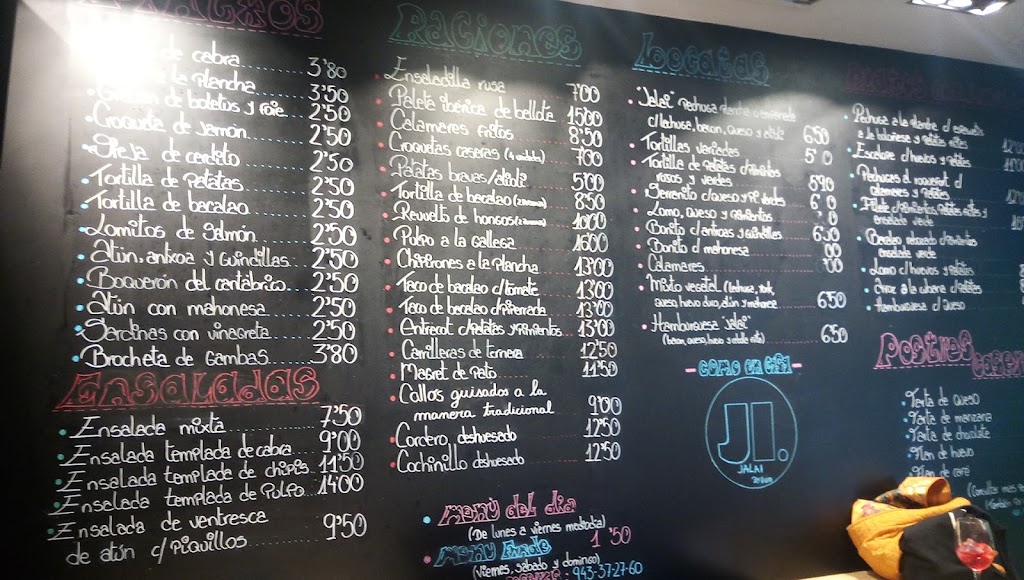 de cabra 3'80
a la plancha 3'50
de boletus y foie 2'50
Croqueta de jamón 2'50
Oreja de cerdito 2'50
Tortilla de Patatas 2'50
Tortilla de bacalao 2'50
Lomitos de salmón 2'50
Atún, antxoa y guindillas 2'50
Boquerón del cantábrico 2'50
Atún con mahonesa 2'50
Sardinas con vinagreta 2'50
Brocheta de Gambas 3'80
Ensaladas
Ensalada mixta 7'50
Ensalada templada de cabra 9'00
Ensalada templada de chipis 11'50
Ensalada templada de Pulpo 14'00
Ensalada de ventresca
de atún c/ Piquillos 9'50
Raciones
Ensaladilla rusa 7'00
Paleta ibérica de bellota 15'00
Calamares fritos 8'50
Croquetas caseras 7'00
Patatas bravas/alioli 5'00
Tortilla de bacalao 8'50
Revuelto de hongos
Pulpo a la gallega 16'00
Chipirones a la plancha 13'00
Taco de bacalao c/ tomate 13'00
Taco de bacalao c/ piperrada 13'00
Entrecot c/ patatas y pimientos 13'00
Carrilleras de ternera 12'50
Magret de Pato 11'50
Callos guisados a la
manera tradicional 9'00
Cordero, deshuesado 12'50
Cochinillo deshuesado 12'50
Menu del dia
(De lunes a viernes mediodia)
'50
Menu Finde
(viernes, sabado y domingo)
943-37-27-60
Bocatas
"Jalai" Pechuga plancha o
c/ lechuga, bacon, queso y 6'50
Tortillas variadas
Tortilla de patatas c/ pimientos
rojos y verdes
Serranito c/ queso y verdes
Lomo, queso y pimientos
Bonito c/ antxoas y guindillas 6'50
Bonito c/ mahonesa
Calamares
Mixto vegetal (lechuga,
queso, huevo duro, atún y mahonesa 6'50
Hamburguesa "jalai"
(bacon, queso, huevo y cebolla frita) 6'50
- COMO EN CASA -
JI.
JALAI
Pechuga a la plancha c/
a la y patatas
Escalope c/ huevos y patatas
Pechugas al roquefort c/
calamares y patatas
c/ pimientos, patatas
ensalada verde
Bacalao rebozado c/ pimientos
ensalada verde
Lomo c/ huevos y patatas
Arroz a la cubana c/ patatas
Hamburguesa c/ queso
Postres
Tarta de queso
Tarta de manzana
Tarta de chocolate
Flan de huevo
Flan de café
(Consulta